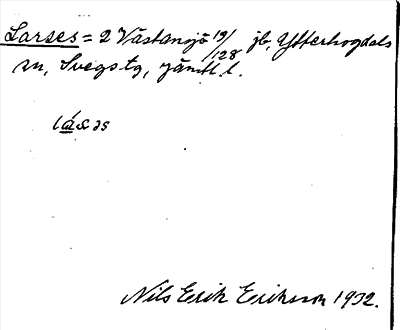 Larses = 2 Västansjö 19/128 jb, Ytterhogdals
sn, Svegs tg, Jämtl. l.
lá̱səs
Nils Erik Eriksson 1932.